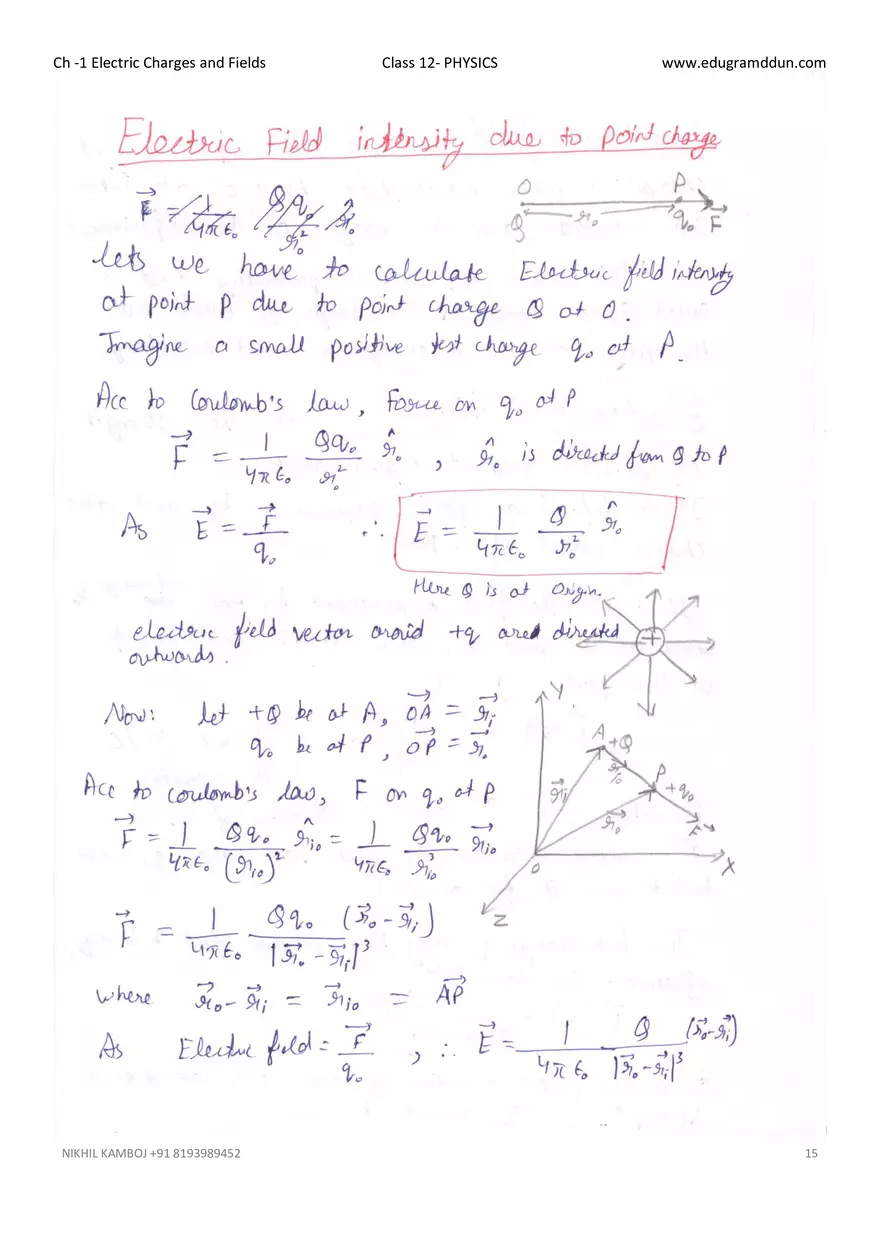 Ch -1 Electric Charges and Fields Class 12- PHYSICS www.edugramddun.com
Electric Field intensity due to point charge
O P
Q r₀ q₀ F⃗
lets we have to calculate Electric field intensity
at point P due to point charge Q at O.
Imagine a small positive test charge q₀ at P.
Acc to Coulomb's law, Force on q₀ at P
F⃗ = 1/4πε₀ Qq₀/r₀² r̂₀ , r̂₀ is directed from Q to P
As E⃗ = F⃗/q₀ ∴ E⃗ = 1/4πε₀ Q/r₀² r̂₀
Here Q is at Origin.
electric field vector arorid +q are directed
outwards.
+
Now: let +Q be at A, OA⃗ = r⃗ᵢ
q₀ be at P, OP⃗ = r⃗₀
Acc to coulomb's law, F on q₀ at P
Y
A +Q
r⃗ᵢ P +q₀
r⃗₀ F⃗
O X
Z
F⃗ = 1/4πε₀ Qq₀/(rᵢ₀)² r̂ᵢ₀ = 1/4πε₀ Qq₀/rᵢ₀³ r⃗ᵢ₀
F⃗ = 1/4πε₀ Qq₀ (r⃗₀ - r⃗ᵢ)/|r⃗₀ - r⃗ᵢ|³
where r⃗₀ - r⃗ᵢ = r⃗ᵢ₀ = AP⃗
As Electric field = F⃗/q₀ , ∴ E⃗ = 1/4πε₀ Q (r⃗₀-r⃗ᵢ)/|r⃗₀-r⃗ᵢ|³
NIKHIL KAMBOJ +91 8193989452 15